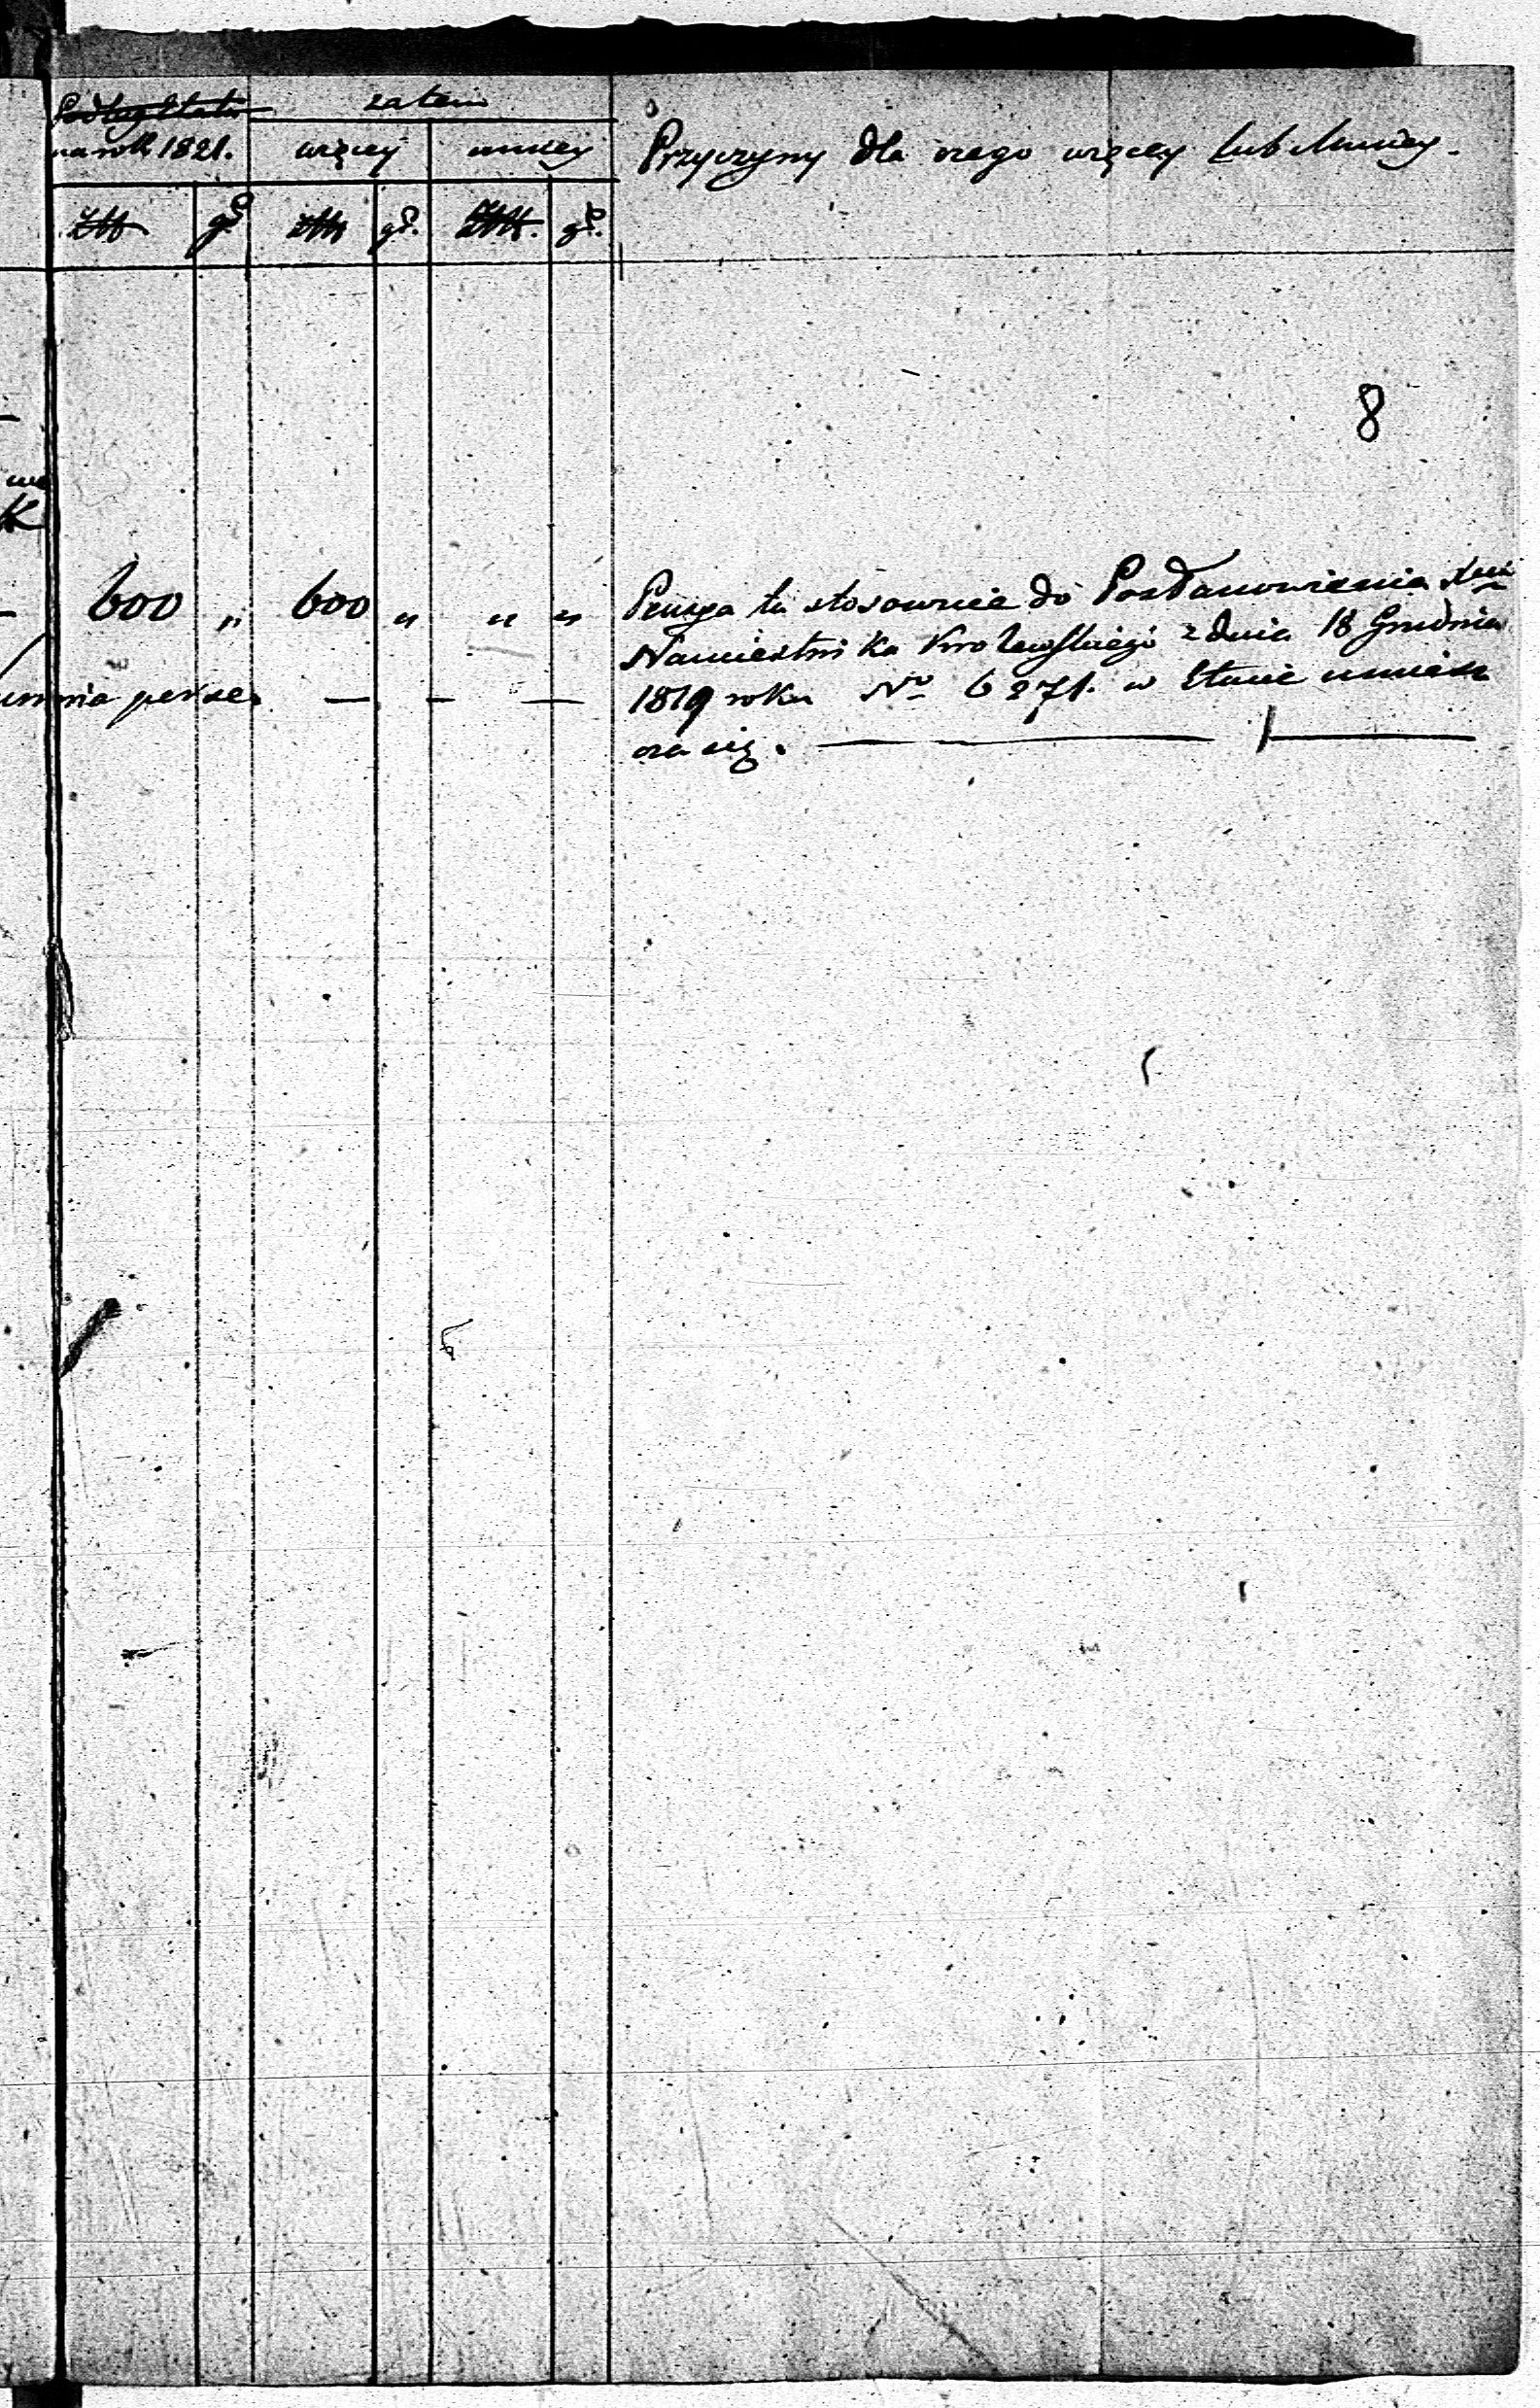 Podług Etatu
na rok 1821.
zatem
więcey
mniey
Przyczyny dla czego więcey lub Mniey.
Złł
gr
Złł
gr.
Złł.
gr.
8
600 " 600 " " "
Pensya ta stosownie do Postanowienia
Namiestnika Krolewskiego z dnia 18 Grudnia
1819 roku No 6271. w Etacie umiesz
cza się.
summa per se.